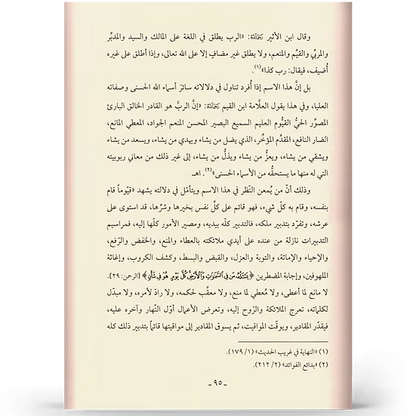 وقال ابن الأثير رَحِمَهُ اللهُ: «الرب يطلق في اللغة على المالك والسيد والمدبِّر
والمربِّي والقيِّم والمنعم، ولا يطلق غير مضافٍ إلا على الله تعالى، وإذا أطلق على غيره
أُضيف، فيقال: رب كذا»(١).
بل إنَّ هذا الاسم إذا أُفرد تناول في دلالاته سائرَ أسماء الله الحسنى وصفاته
العليا، وفي هذا يقول العلَّامة ابن القيم رَحِمَهُ اللهُ: «إنَّ الربَّ هو القادر الخالق البارئ
المصوِّر الحيُّ القيُّوم العليم السميع البصير المحسن المنعم الجواد، المعطي المانع،
الضار النافع، المقدِّم المؤخِّر، الذي يضل من يشاء ويهدي من يشاء، ويسعد من يشاء
ويشقي من يشاء، ويعزُّ من يشاء ويذلُّ من يشاء، إلى غير ذلك من معاني ربوبيته
التي له منها ما يستحقُّه من الأسماء الحسنى»(٢). اهـ
وذلك أنَّ من يُمعن النَّظر في هذا الاسم ويتأمَّل في دلالته يشهد «قيُّوماً قام
بنفسه، وقام به كلُّ شيء، فهو قائم على كلِّ نفس بخيرها وشرِّها، قد استوى على
عرشه، وتفرَّد بتدبير ملكه، فالتدبير كلُّه بيديه، ومصير الأمور كلِّها إليه، فمراسيم
التدبيرات نازلة من عنده على أيدي ملائكته بالعطاء والمنع، والخفض والرَّفع،
والإحياء والإماتة، والتوبة والعزل، والقبض والبسط، وكشف الكروب، وإغاثة
الملهوفين، وإجابة المضطرين ﴿يَسْئَلُهُۥ مَن فِى ٱلسَّمَٰوَٰتِ وَٱلْأَرْضِ كُلَّ يَوْمٍ هُوَ فِى شَأْنٍ﴾ [الرحمن: ٢٩].
لا مانع لما أعطى، ولا مُعطي لما منع، ولا معقِّب لحكمه، ولا رادَّ لأمره، ولا مبدِّل
لكلماته، تعرج الملائكة والرُّوح إليه، وتعرض الأعمال أوَّل النَّهار وآخره عليه،
فيقدِّر المقادير، ويوقِّت المواقيت، ثم يسوق المقادير إلى مواقيتها قائماً بتدبير ذلك كله
(١) «النهاية في غريب الحديث» (١/ ١٧٩).
(٢) «بدائع الفوائد» (٢/ ٢١٢).
- ٩٥ -